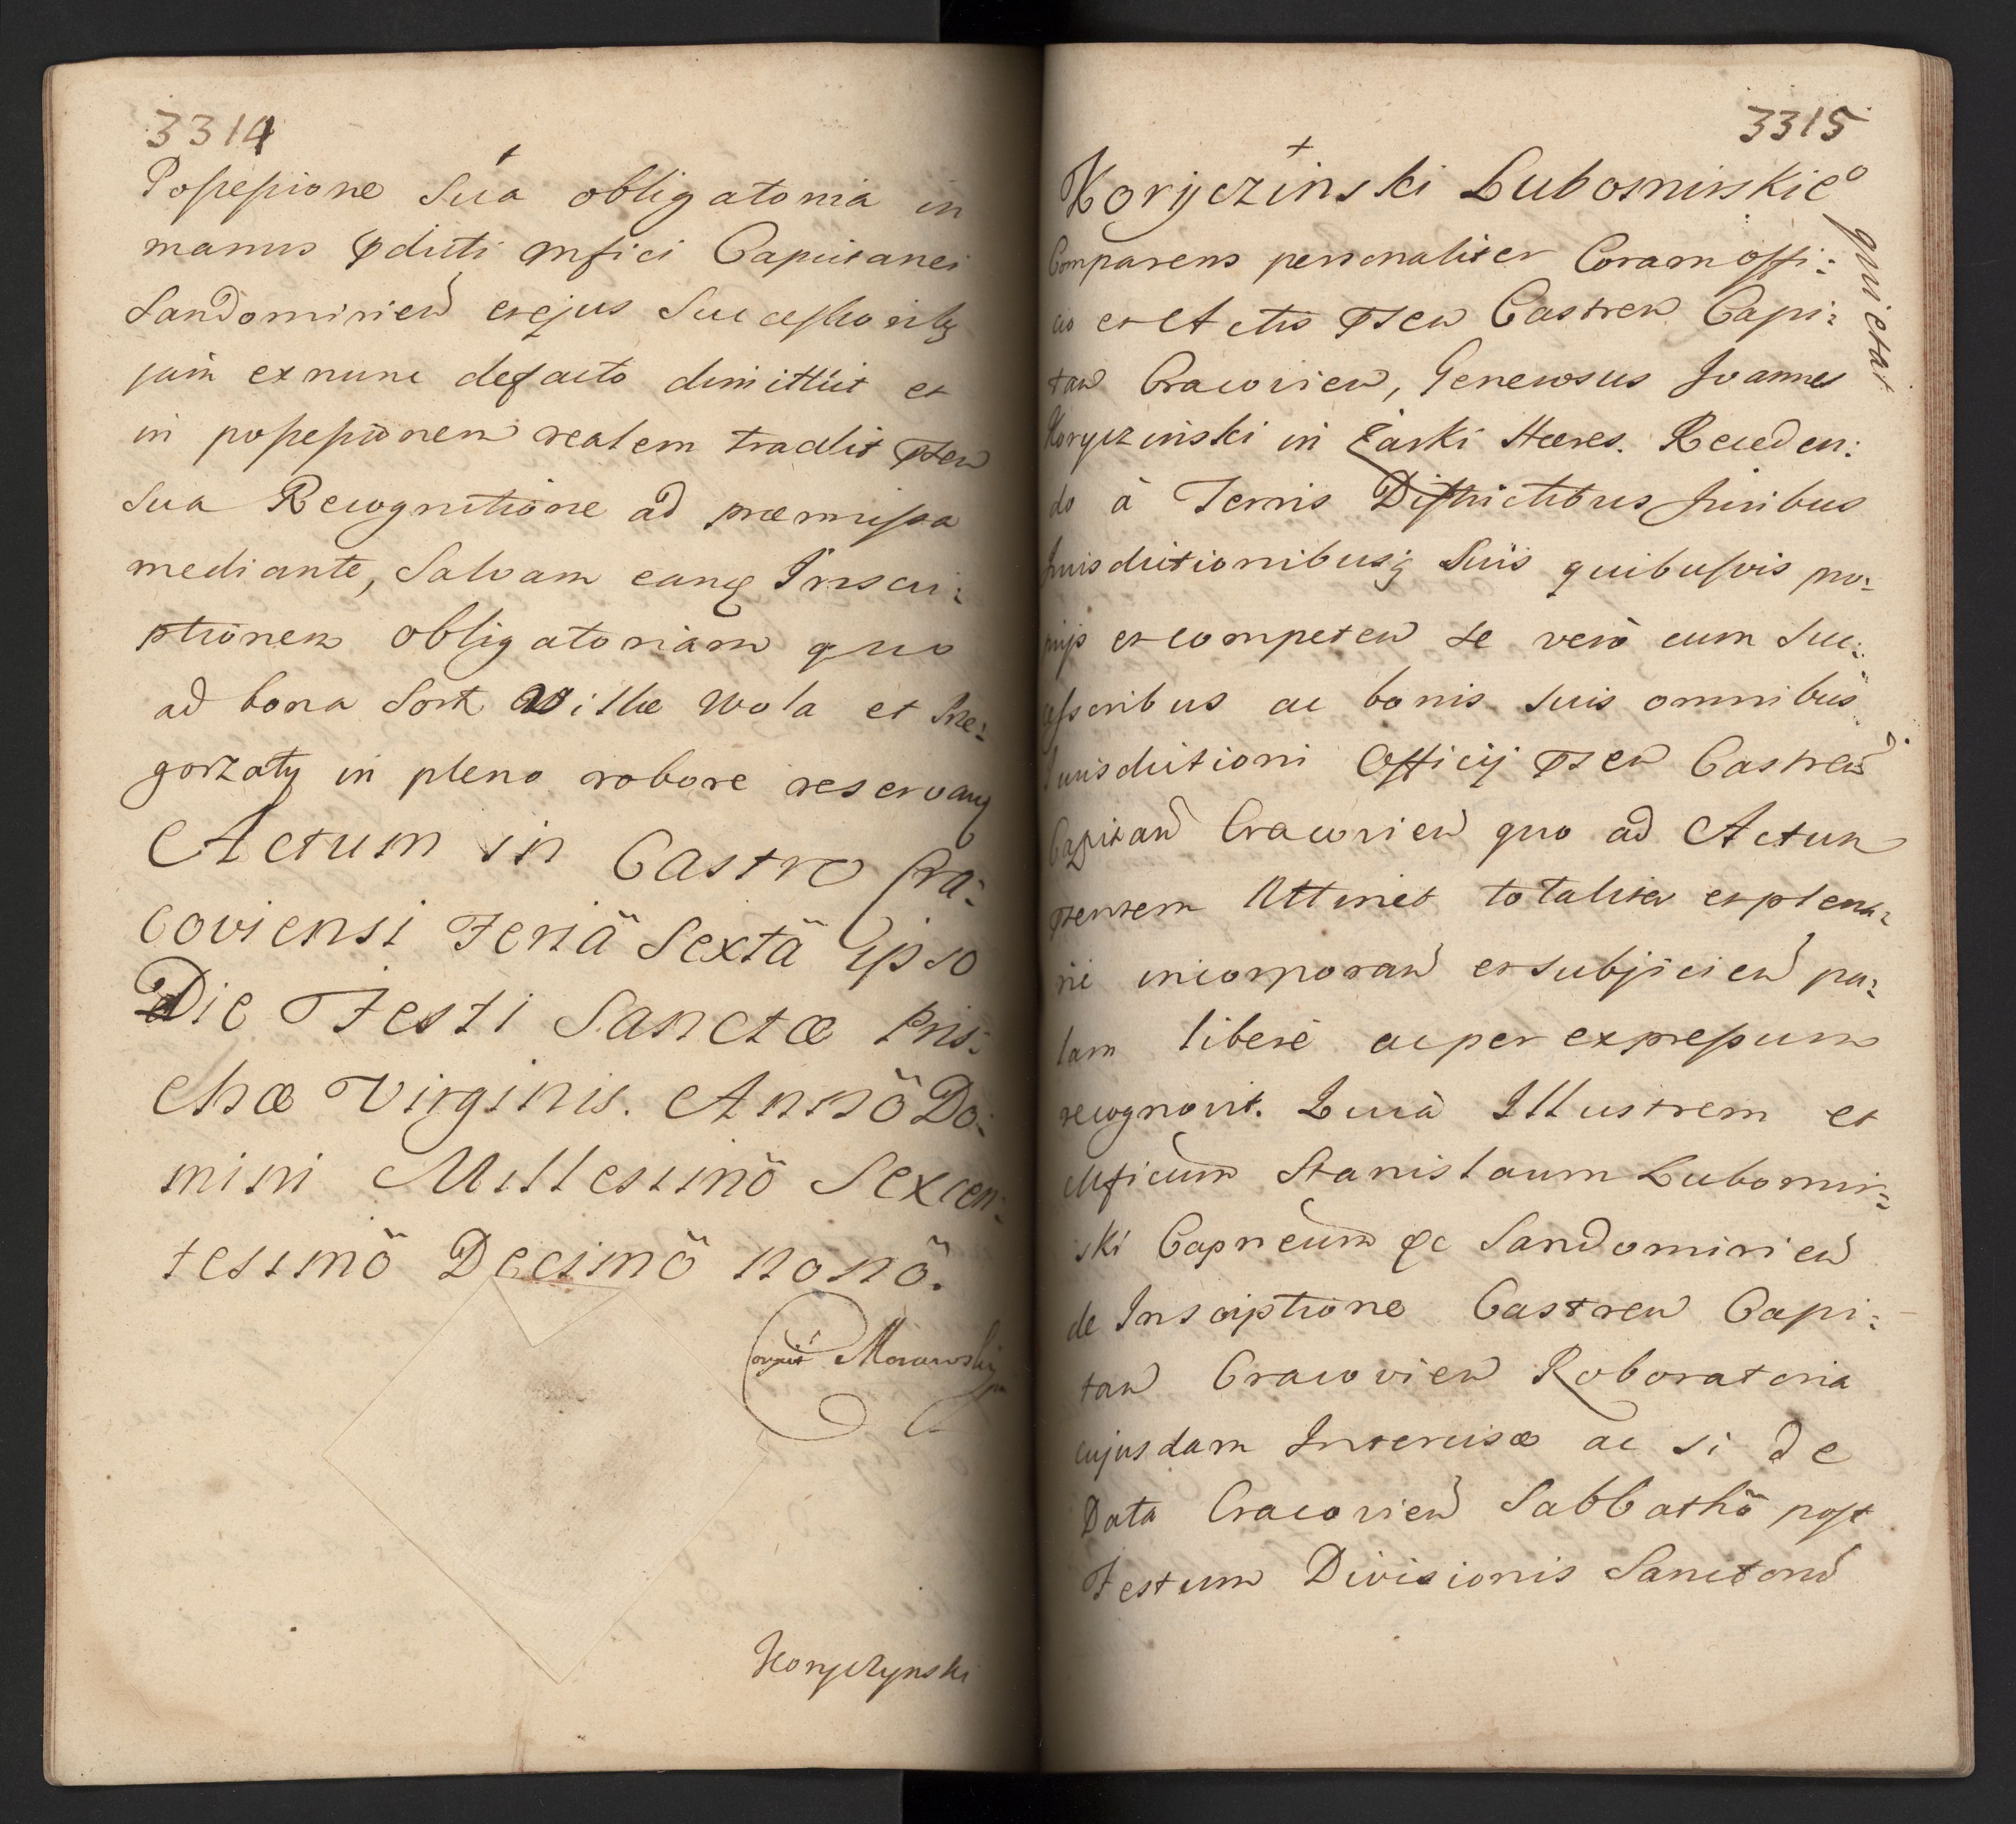 3314
Possessione Sua obligatoria in
manus pdicti Mfici Capitanei
Sandomirien et ejus Successoribq
jam ex nunc defacto dimittit et
in possessionem realem tradit pten
Sua Recognitione ad præmissa
mediante, Salvam eanq Inscri:
ptionem obligatoriam quo
ad bona Sort Villæ Wola et Prze:
gorzaly in pleno robore reservanq
Actum in Castro Cra:
coviensi Feriâ Sextâ ipso
Die Festi Sanctæ Pris:
chæ Virginis. Annô Do:
mini Millesimô Sexcen:
tesimô Decimô nonô.
Correxit Morawski
Koryczynski
3315
Koryczinski Lubomirskieo
quietat
Comparens personaliter Coram offi:
cio et Actis pten Castren Capi:
tan Cracovien, Generosus Joannes
Koryczinski in Zarki Hæres. Receden:
do à Terris Districtibus Juribus
Jurisdictionibusq Suis quibusvis pro:
prijs et competen se verò cum Suc:
cessoribus ac bonis suis omnibus
Jurisdictioni Officij pten Castren
Capitan Cracovien quo ad Actum
ptentem Attinet totaliter et plena:
riè incorporan et subjicien pa:
lam liberè ac per expressum
recognovit. Quià Illustrem et
Mficum Stanislaum Lubomir:
ski Capneum &c Sandomirien
de Inscriptione Castren Capi:
tan Cracovien Roboratoria
cujusdam Intercisæ ac si de
Data Cracovien Sabbathô post
Festum Divisionis Sanctorum